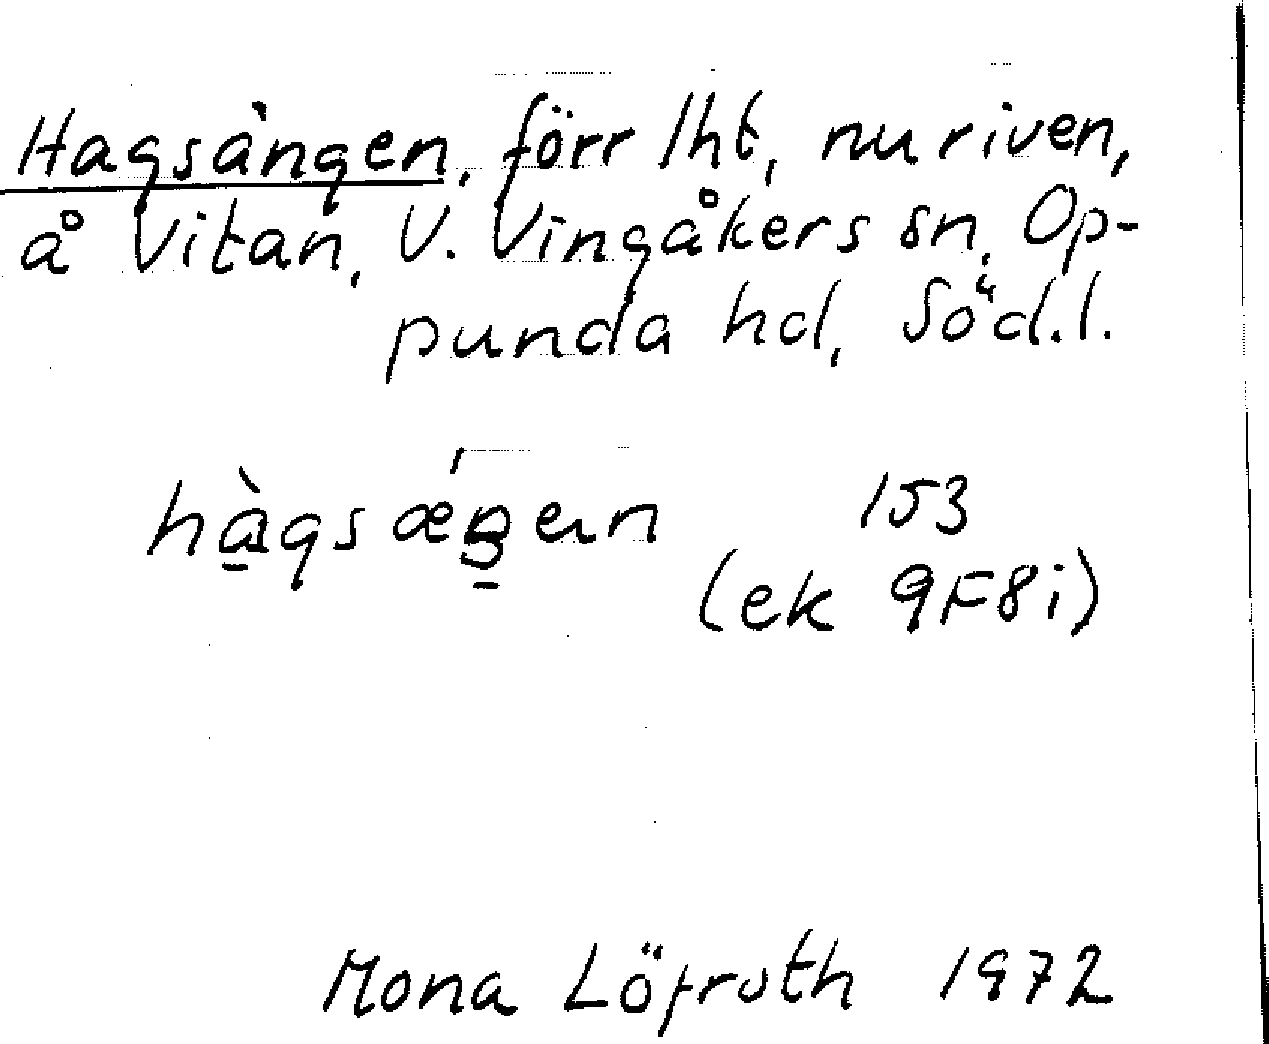 Hagsängen, förr lht, nu riven,
å Vitan, V. Vingåkers sn, Op-
punda hd, Söd.l.
hàgsǽŋen 153
(ek 9F8i)
Mona Löfroth 1972